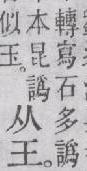 轉寫石多譌
本昆譌
似玉。
从王。